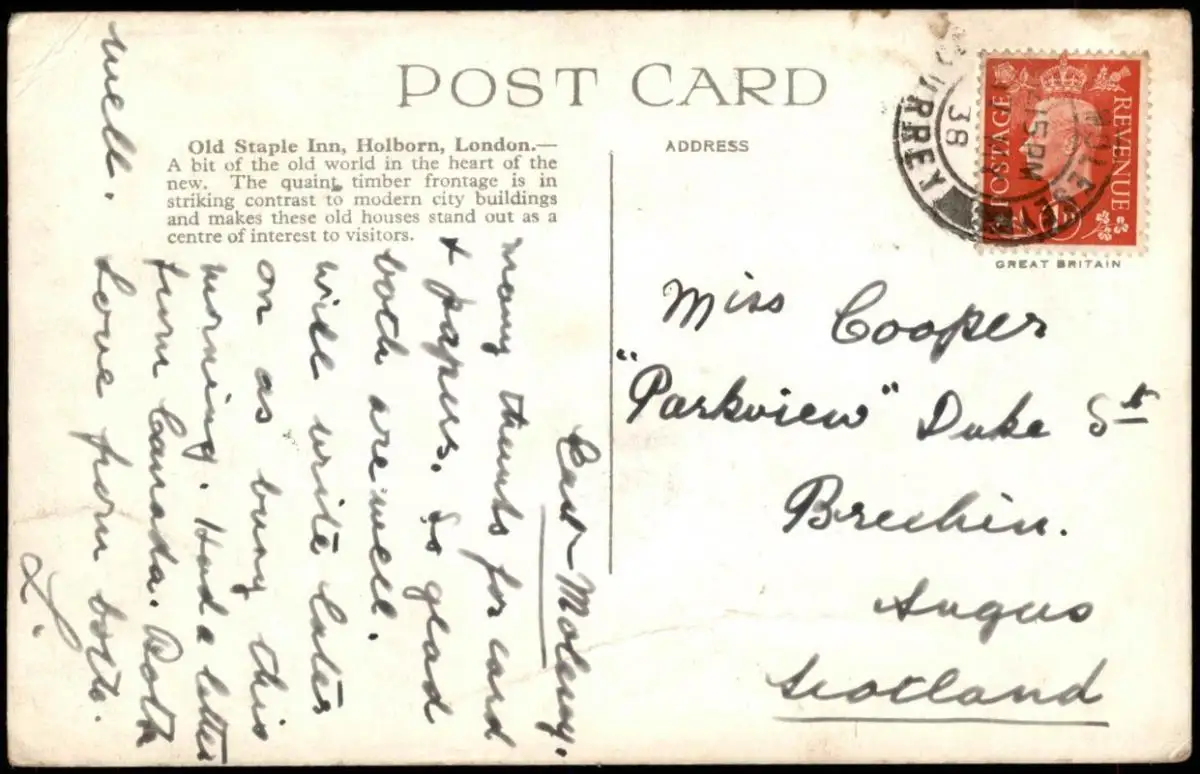 POST CARD
Old Staple Inn, Holborn, London.—
A bit of the old world in the heart of the
new. The quaint timber frontage is in
striking contrast to modern city buildings
and makes these old houses stand out as a
centre of interest to visitors.
East Molesey.
many thanks for card
& papers. So glad
both are well.
will write later
on as busy this
morning. Had a letter
from Canada. Both
well. Love from both.
L.
ADDRESS
POSTAGE REVENUE
GREAT BRITAIN
SURREY
15 PM
38
Miss Cooper
"Parkview" Duke St
Brechin.
Angus
Scotland